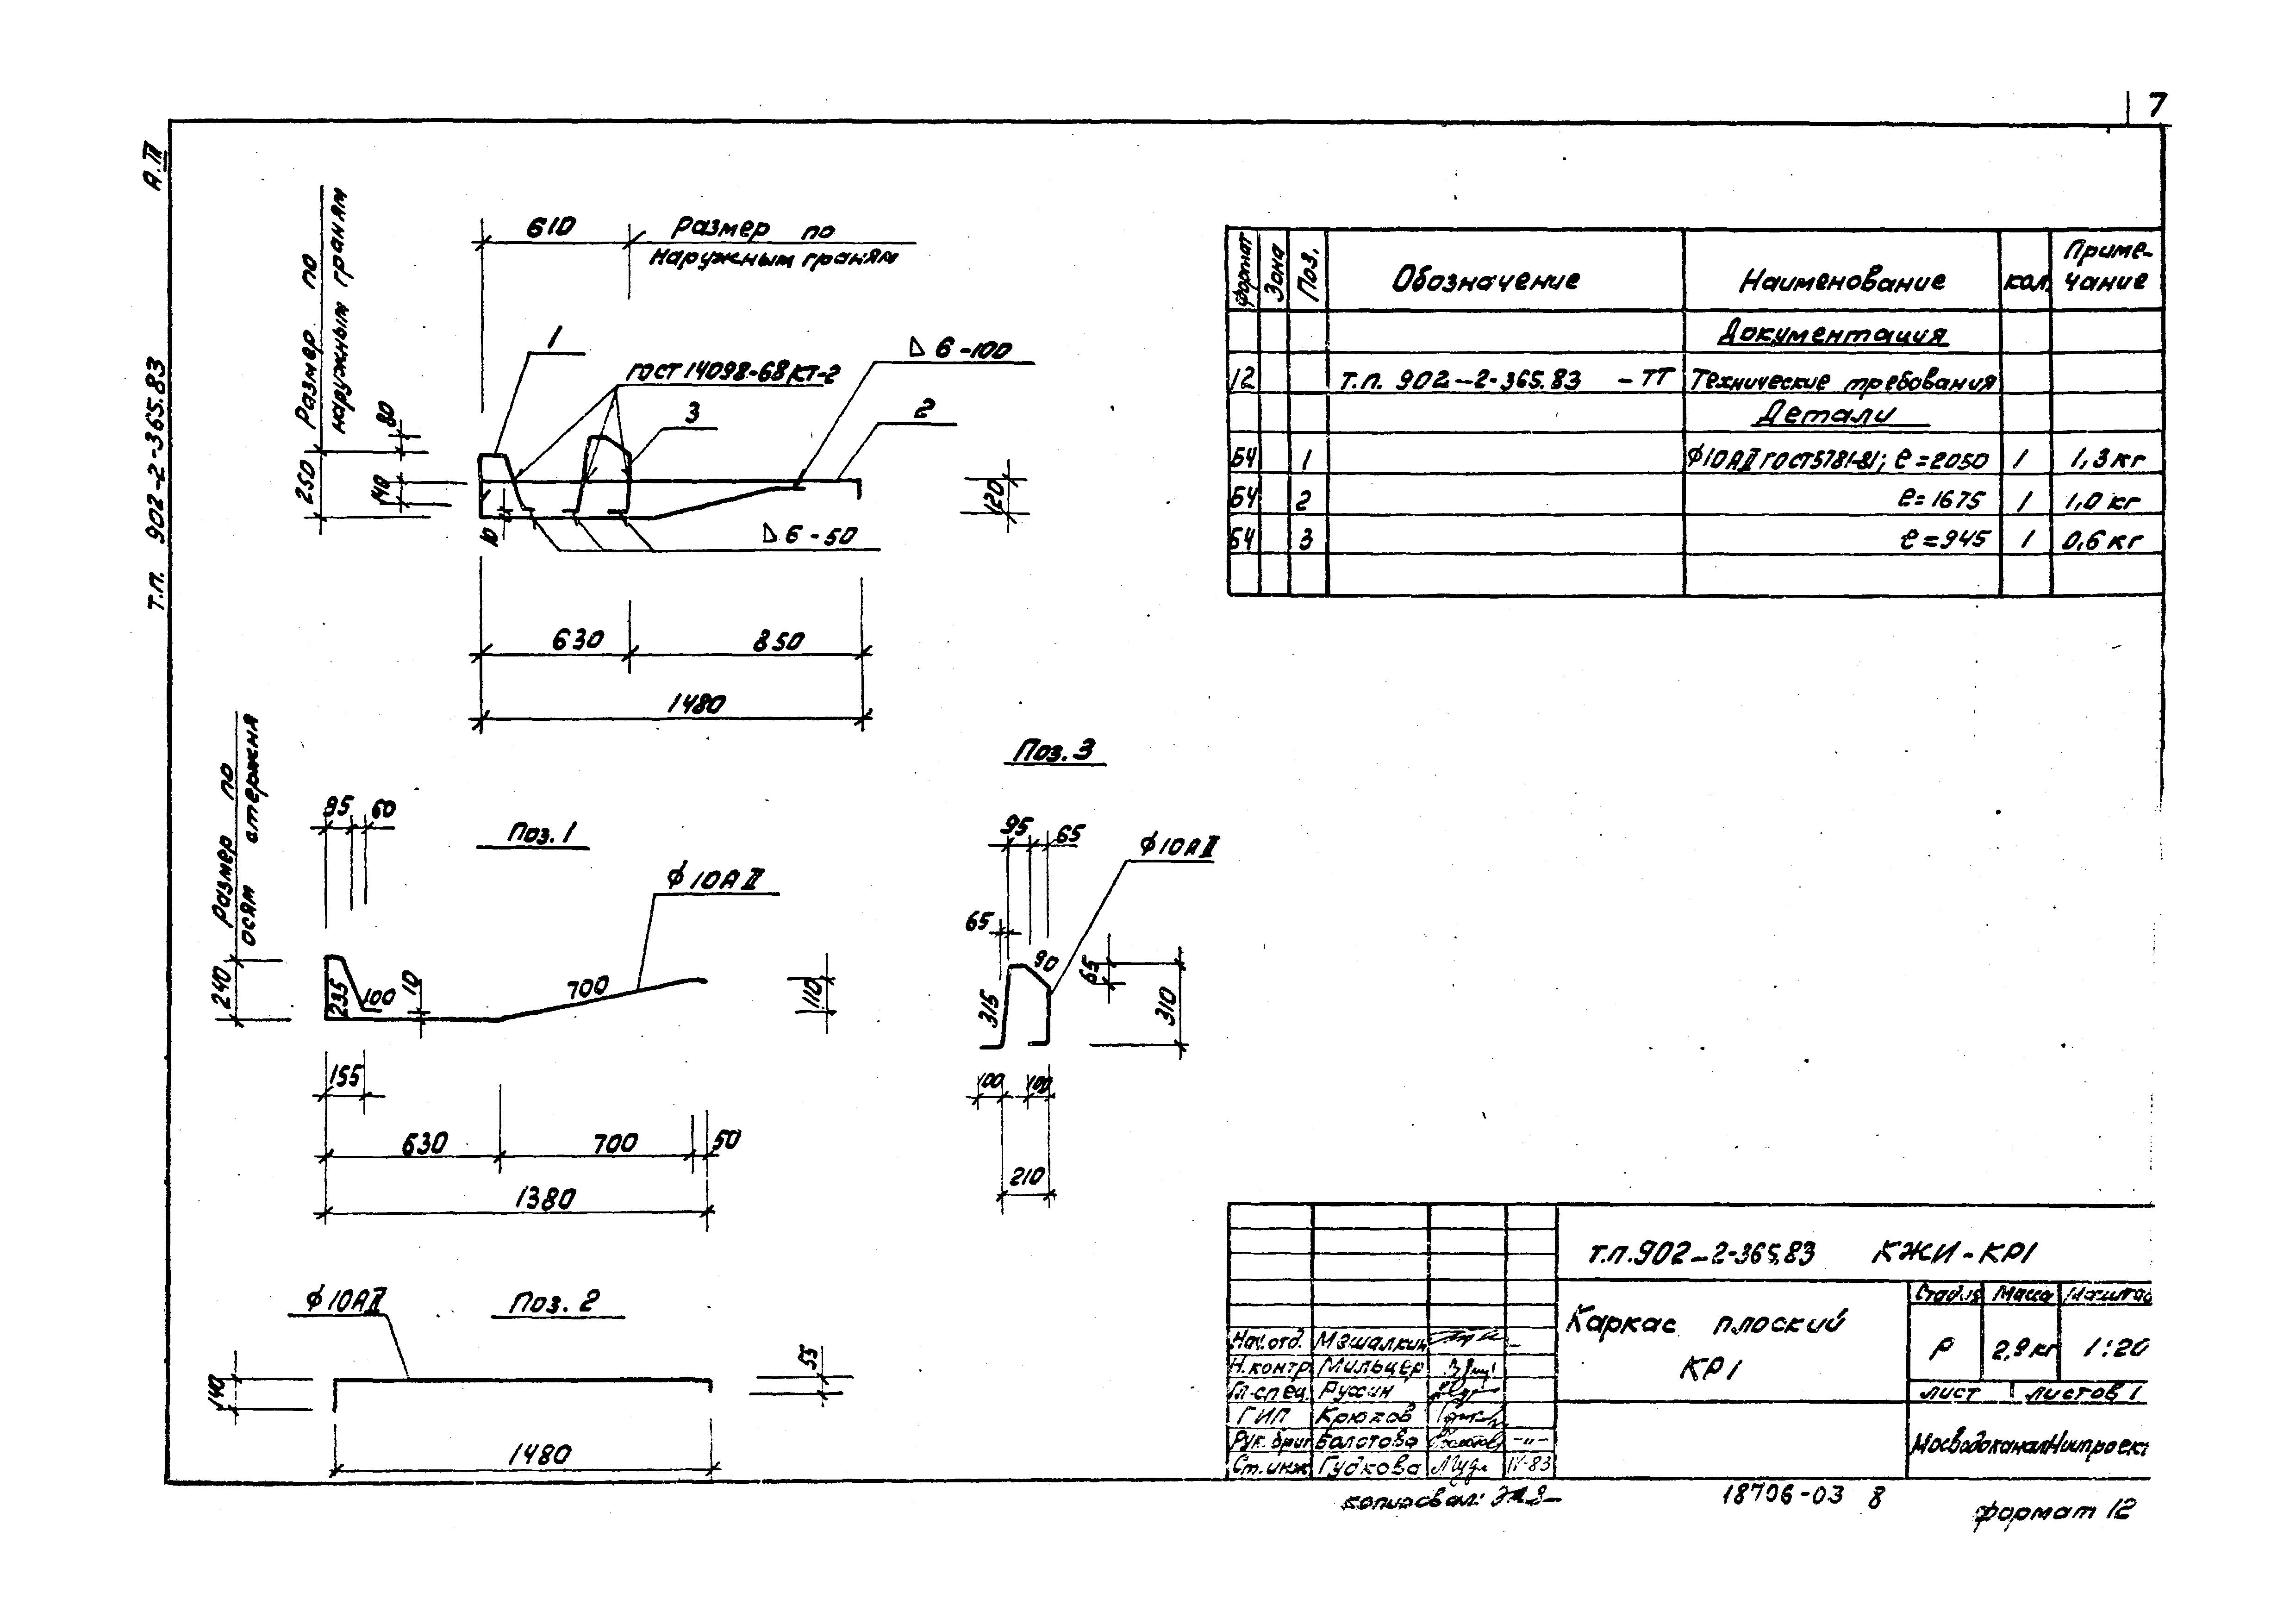 7
А.III
Т.П. 902-2-365.83
610
Размер по
наружным граням
Размер по
наружным граням
80
250
140
10
1
ГОСТ 14098-68 КТ-2
3
Δ 6-100
2
120
Δ 6-50
630
850
1480
Размер по
осям стержня
240
95
60
Поз. 1
ϕ10АII
235
100
10
700
110
155
630
700
50
1380
Поз. 3
95
65
ϕ10АII
65
90
65
315
310
100
100
210
ϕ10АII
Поз. 2
140
55
1480
формат Зона Поз. Обозначение Наименование кол. Приме-
чание
Документация
12 Т.П. 902-2-365.83 -ТТ Технические требования
Детали
БЧ 1 ϕ10АII ГОСТ 5781-81; ℓ=2050 1 1,3 кг
БЧ 2 ℓ=1675 1 1,0 кг
БЧ 3 ℓ=945 1 0,6 кг
Т.П. 902-2-365.83 КЖИ-КР1
Каркас плоский
КР1
Стадия Масса Масштаб
Р 2,9 кг 1:20
лист листов 1
МосводоканалНиипроект
Нач. отд.
Н. контр. Мильцер
Гл. спец.
ГИП Крюков
Рук. бриг. Болотова -"-
Ст. инж. Гудкова IV-83
копировал:
18706-03 8
формат 12